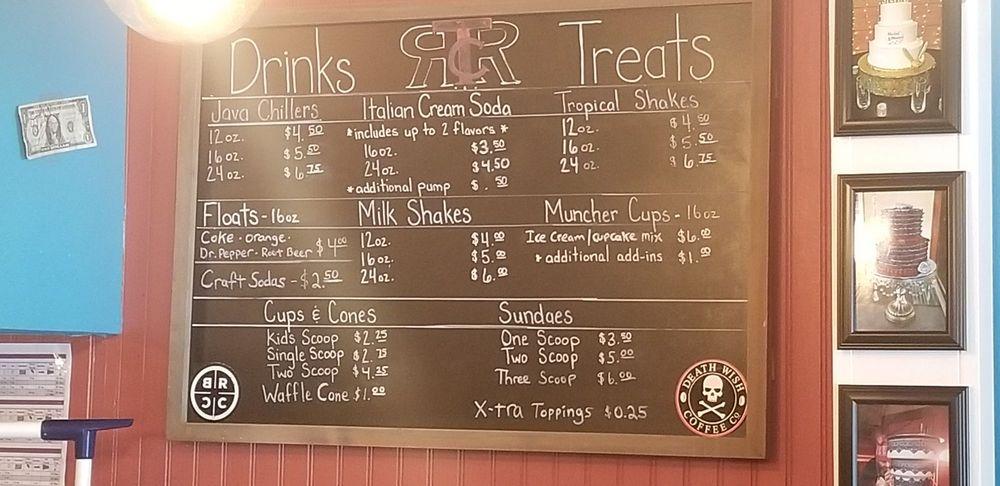 Drinks RTR Treats
Java Chillers
12 oz. $4.50
16 oz. $5.50
24 oz. $6.75
Italian Cream Soda
*includes up to 2 flavors*
16oz. $3.50
24oz. $4.50
*additional pump $.50
Tropical Shakes
12oz. $4.50
16oz. $5.50
24oz. $6.75
Floats - 16oz
Coke · orange ·
Dr. Pepper · Root Beer $4.00
Craft Sodas - $2.50
Milk Shakes
12oz. $4.00
16oz. $5.00
24oz. $6.00
Muncher Cups - 16oz
Ice Cream/cupcake mix $6.00
*additional add-ins $1.00
Cups & Cones
Kids Scoop $2.25
Single Scoop $2.75
Two Scoop $4.25
Waffle Cone $1.00
Sundaes
One Scoop $3.50
Two Scoop $5.00
Three Scoop $6.00
X-tra Toppings $0.25
BRCC
DEATH WISH
COFFEE CO